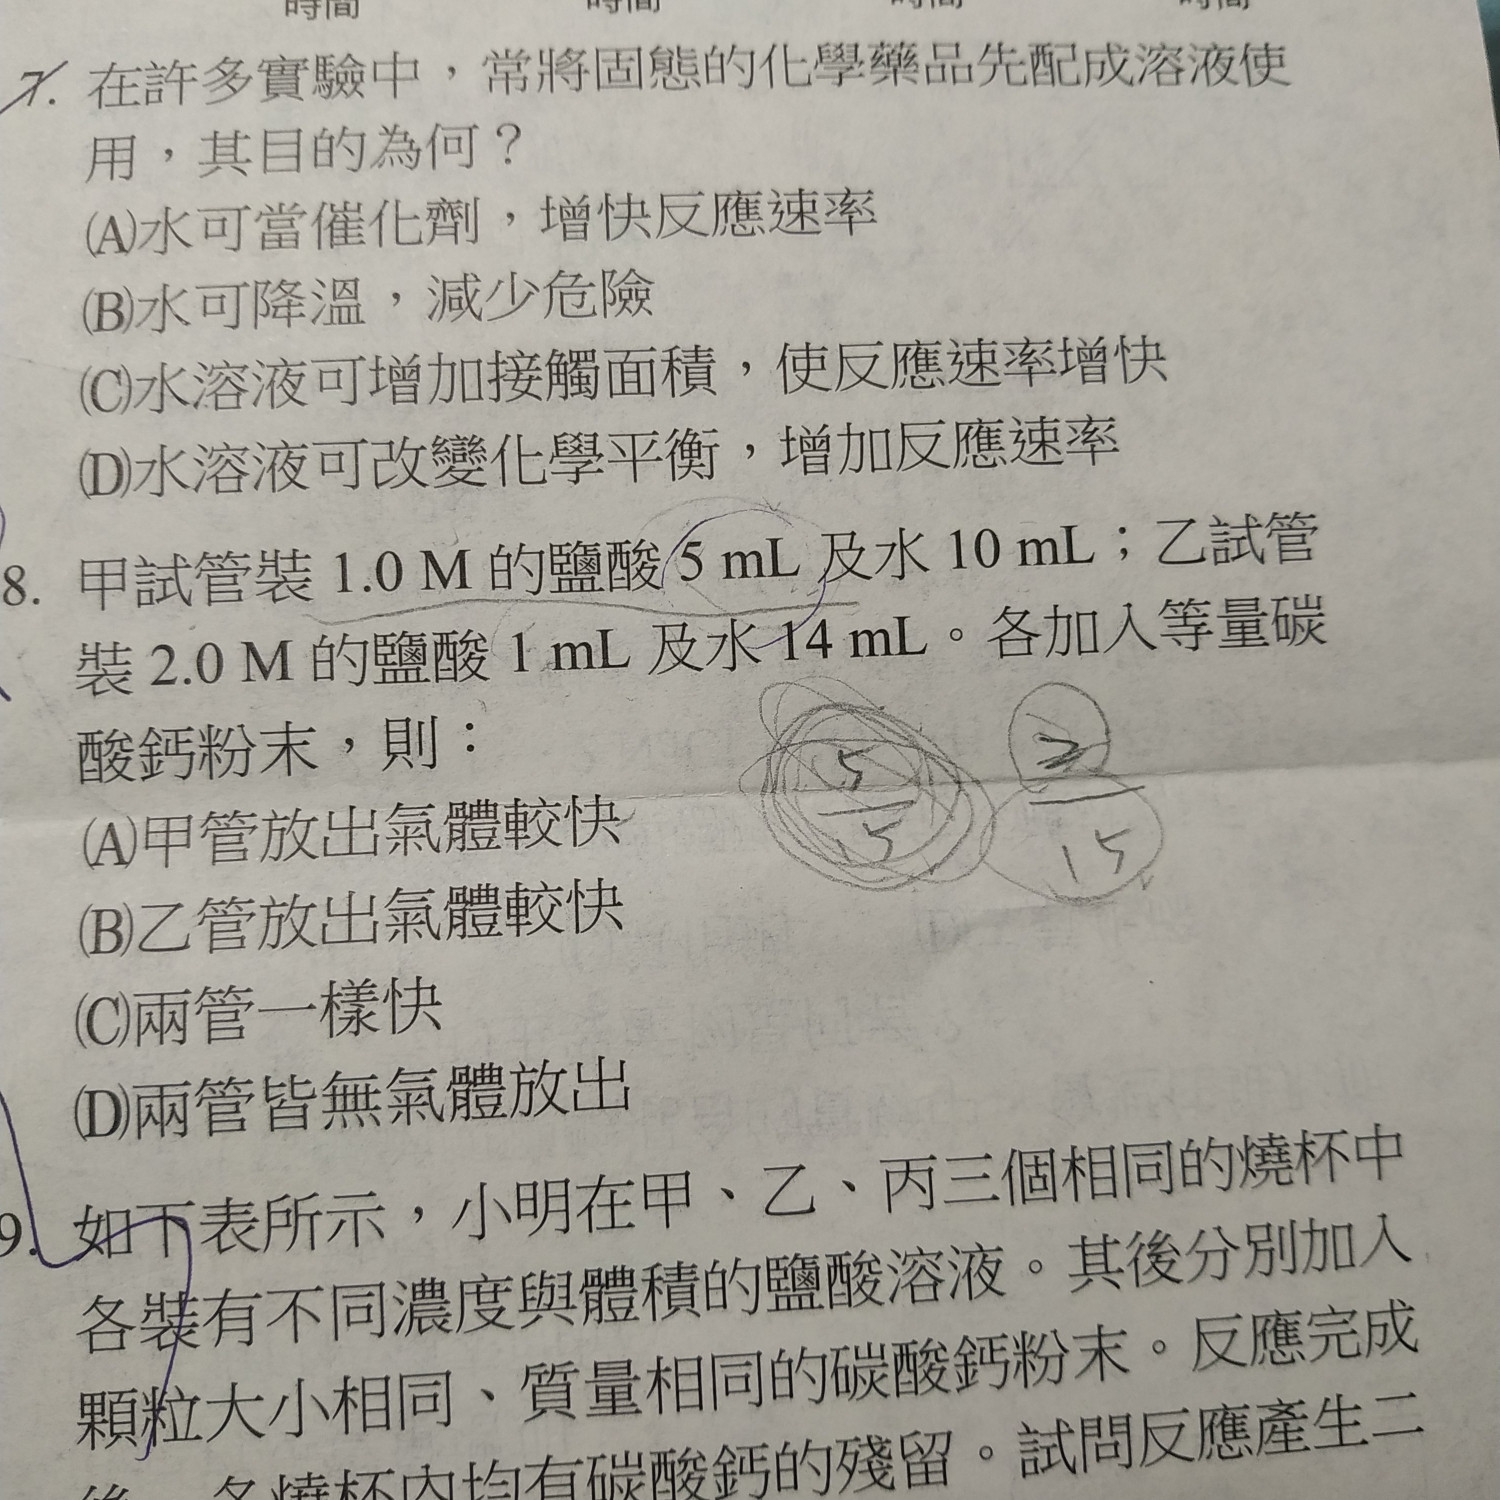 時間 時間 時間 時間
7. 在許多實驗中,常將固態的化學藥品先配成溶液使
用,其目的為何?
(A)水可當催化劑,增快反應速率
(B)水可降溫,減少危險
(C)水溶液可增加接觸面積,使反應速率增快
(D)水溶液可改變化學平衡,增加反應速率
8. 甲試管裝 1.0 M 的鹽酸 5 mL 及水 10 mL;乙試管
裝 2.0 M 的鹽酸 1 mL 及水 14 mL。各加入等量碳
酸鈣粉末,則:
5/15 2/15
(A)甲管放出氣體較快
(B)乙管放出氣體較快
(C)兩管一樣快
(D)兩管皆無氣體放出
9. 如下表所示,小明在甲、乙、丙三個相同的燒杯中
各裝有不同濃度與體積的鹽酸溶液。其後分別加入
顆粒大小相同、質量相同的碳酸鈣粉末。反應完成
後,各燒杯內均有碳酸鈣的殘留。試問反應產生二